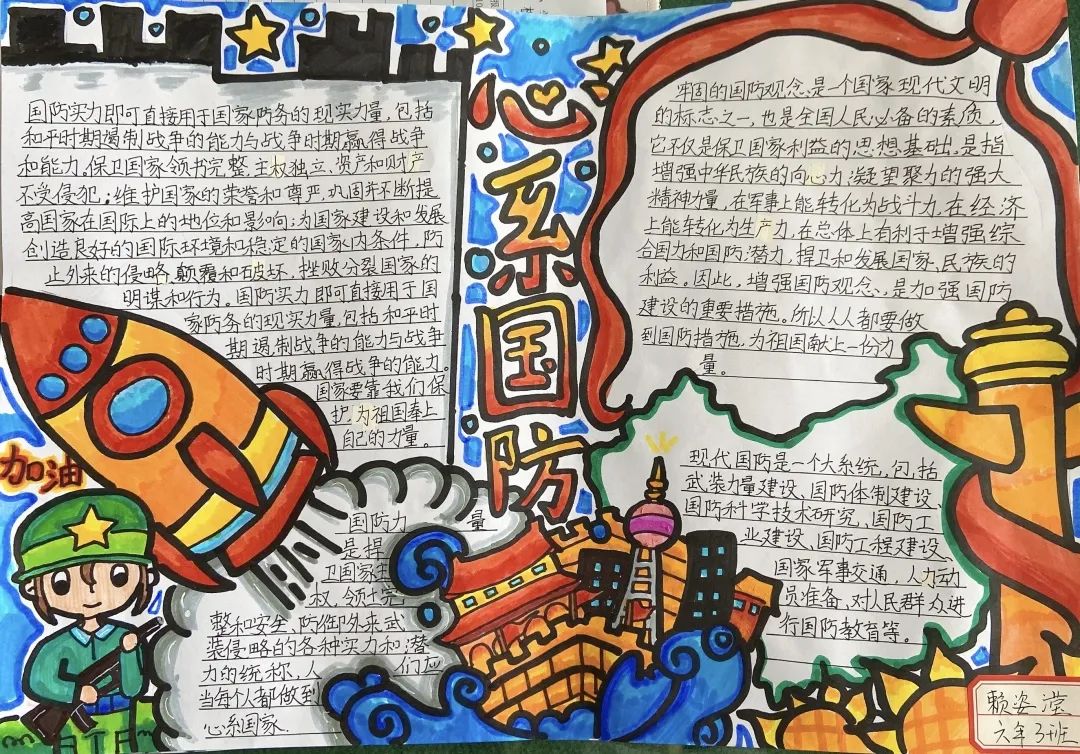 心系国防
国防实力即可直接用于国家防务的现实力量,包括
和平时期遏制战争的能力与战争时期赢得战争
和能力,保卫国家领书完整,主权独立、资产和财产
不受侵犯;维护国家的荣誉和尊严,巩固来不断提
高国家在国际上的地位和影响;为国家建设和发展
创造良好的国际环境和稳定的国家内条件,防
止外来的侵略,颠覆和破坏,挫败分裂国家的
明谋和行为。国防实力即可直接用于国
家防务的现实力量,包括和平时
期遏制战争的能力与战争
时期赢得战争的能力。
国家要靠我们保
护,为祖国奉上
自己的力量。
加油
国防力量
是捍
卫国家主
权,领土完
整和安全,防御外来武
装侵略的各种实力和潜
力的统称,人们应
当每个人都做到
心系国家.
牢固的国防观念是一个国家现代文明
的标志之一,也是全国人民必备的素质,
它不仅是保卫国家利益的思想基础,是指
增强中华民族的向心力,凝望聚力的强大
精神力量,在军事上能转化为战斗力,在经济
上能转化为生产力,在总体上有利于增强综
合国力和国防潜力,捍卫和发展国家、民族的
利益。因此,增强国防观念、是加强国防
建设的重要措施。所以人人都要做
到国防措施,为祖国献上一份力
量。
现代国防是一个大系统,包括
武装力量建设、国防体制建设、
国防科学技术研究、国防工
业建设、国防工程建设、
国家军事交通,人力动
员准备、对人民群众进
行国防教育等。
赖姿滢
六年3班